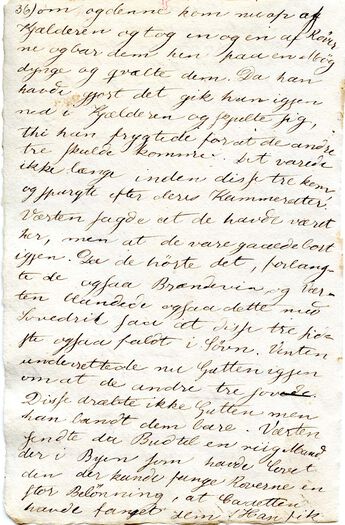 36) som ogdenne kom nu op af
Kjælderen og tog en og en af Røver
ne og bar dem hen paa en Mög
dynge og qvalte dem. Da han
havde gjort det gik han igjen
ned i Kjælderen og skjulte sig,
thi han frygtede for at de andre
tre skulde komme. Det varede
ikke længe inden disse tre kom
og spurgte efter deres Kammerater.
Værten sagde at de havde været
her, men at de vare gaaede bort
igjen. Da de hörte det, forlang-
te de ogsaa Brændeviin, og Vær-
ten blandede ogsaa dette med
Sovedrik saa at disse tre
ogsaa faldt i Sövn. Værten
underrettede nu Gutten igjen
om at de andre tre sov
Disse dræbte ikke Gutten men
han bandt dem bare. Værten
sendte da Bud til en riig Mand
der i Byen som havde lovet
den der kunde fange Röverne en
stor Belönning, at Gutten
havde fanget dem. Han fik